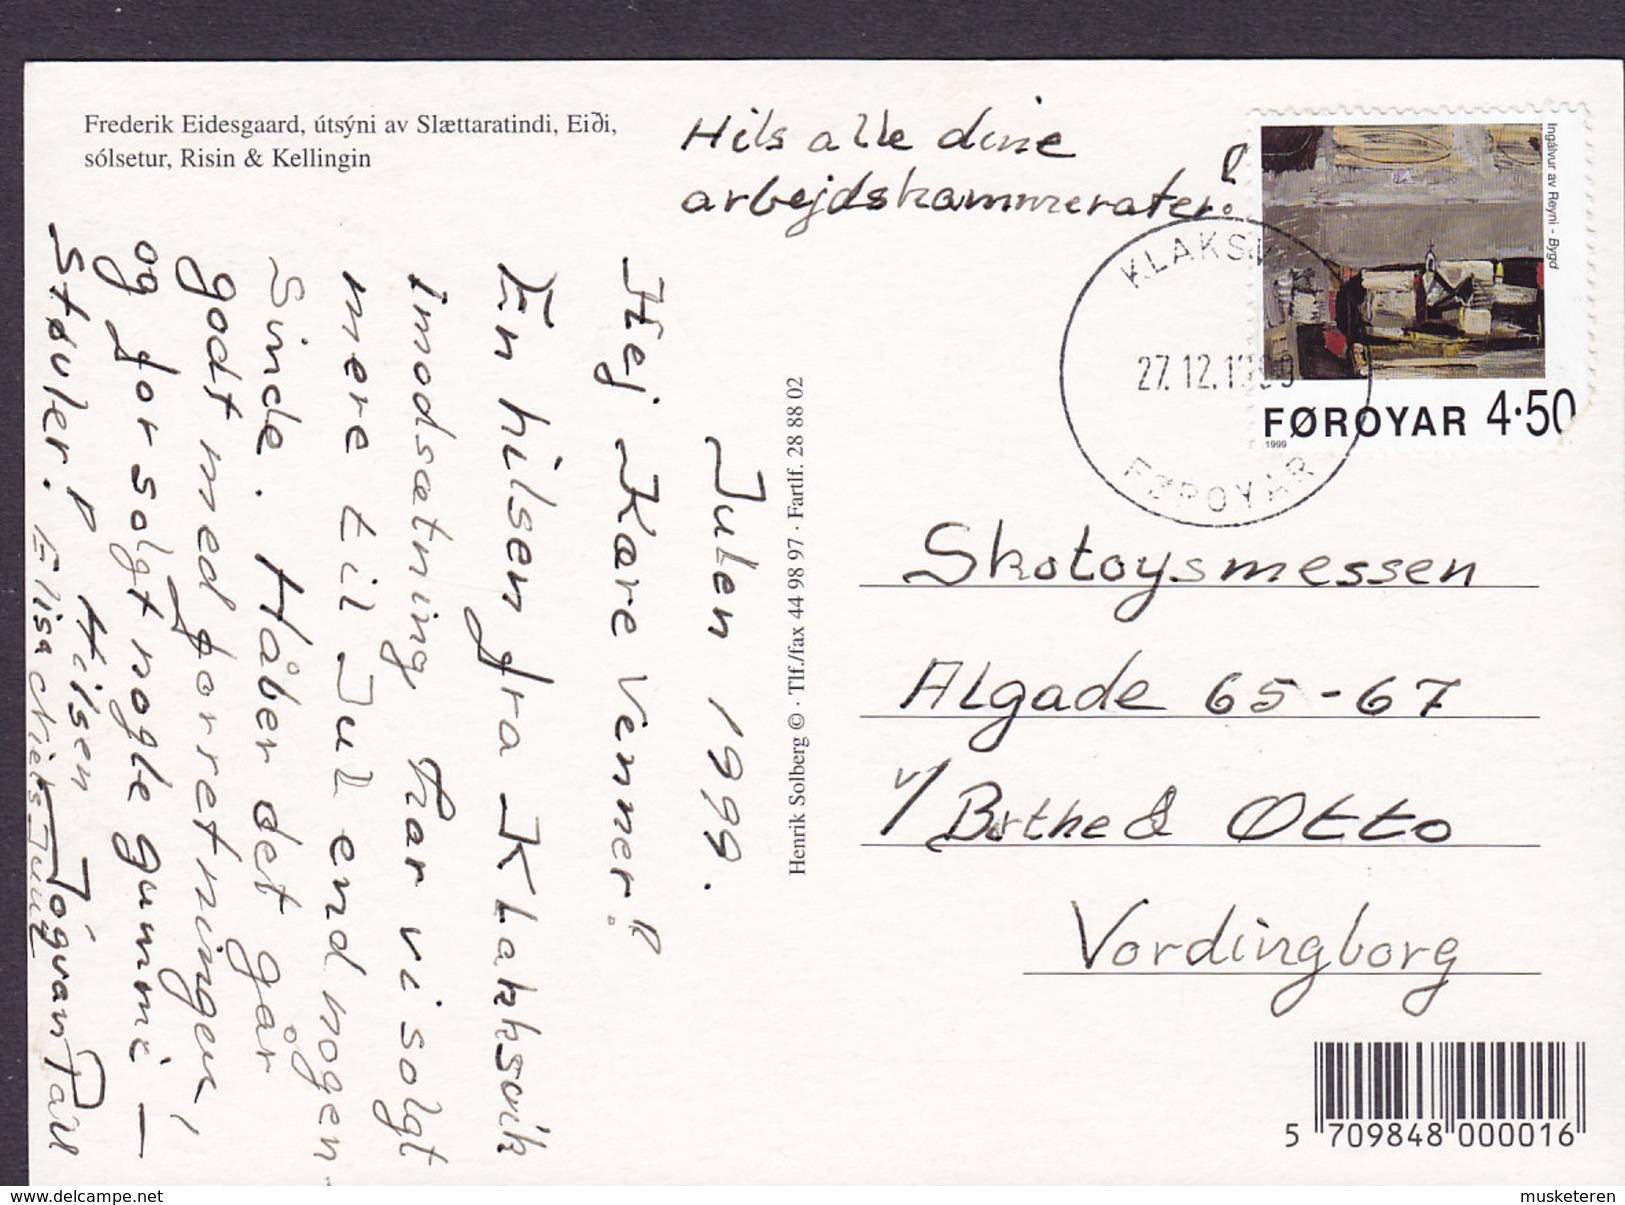 Frederik Eidesgaard, útsýni av Slættaratindi, Eiði,
sólsetur, Risin & Kellingin
Hils alle dine
arbejdskammerater!
Julen 1999.
Hej Kære Venner!
En hilsen fra Klaksvik
Imodsætning har vi solgt
mere til Jul end nogen-
Sinde. Håber det går
godt med forretningen,
og for solgt nogle gummi-
Støvler! Hilsen Jógvan Páll
Elisa
Henrik Solberg © · Tlf./fax 44 98 97 · Fartlf. 28 88 02
Ingálvur av Reyni - Bygd
FØROYAR 4·50
1999
KLAKSV
27.12.1999
FØROYAR
Skotoysmessen
Algade 65-67
v/ Birthe & Otto
Vordingborg
5 709848 000016
www.delcampe.net
musketeren